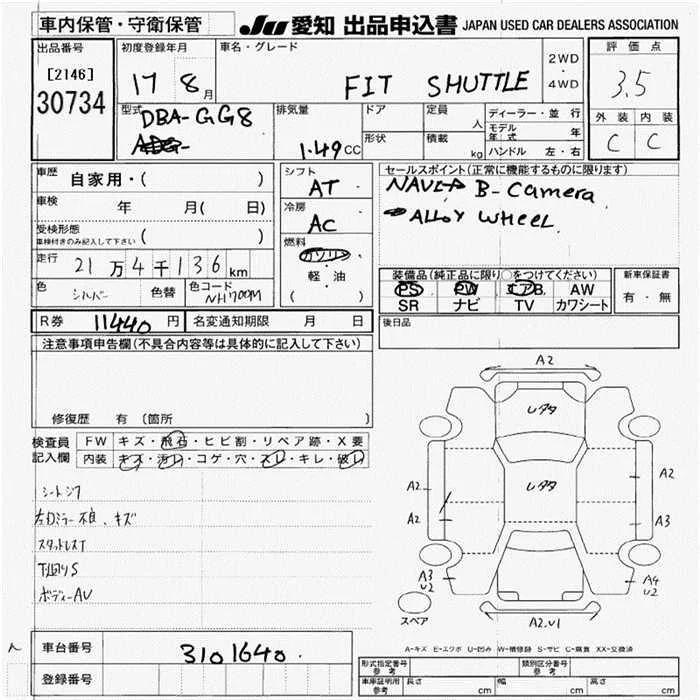 車内保管・守衛保管
JU 愛知 出品申込書 JAPAN USED CAR DEALERS ASSOCIATION
出品番号
[2146]
30734
初度登録年月
17 8月
車名・グレード
FIT SHUTTLE
2WD
・
4WD
評価点
3.5
外装 内装
C C
型式
DBA-GG8
排気量
1.49CC
ドア
形状
定員
人
積載
kg
ディーラー・並行
モデル年式 年
ハンドル 左・右
車歴 自家用・( )
車検 年 月( 日)
受検形態
車検付きのみ記入して下さい ( )
走行 21万4千136km
色 シルバー 色替 色コード NH700M
シフト
AT
冷房
AC
燃料
ガソリン
軽・油
( )
セールスポイント(正常に機能するものに限ります)
NAVI B-Camera
ALLOY WHEEL
装備品(純正品に限り〇をつけてください)
PS PW エアB. AW
SR ナビ TV カワシート
新車保証書
有・無
R券 11440円 名変通知期限 月 日
後日品
注意事項申告欄(不具合内容等は具体的に記入して下さい)
修復歴 有 〔箇所
検査員記入欄
FW キズ・飛石・ヒビ割・リペア跡・X要
内装 キズ・汚レ・コゲ・穴・スレ・キレ・破レ
シートシワ
左Dミラー不良、キズ
スタッドレスT
下廻りS
ボディーAU
A2
レタタ
レタタ
A2
A2
A2
A3
A3
U2
A4
U2
スペア
A2.U1
A-キズ E-エクボ U-凹み W-補修跡 S-サビ C-腐食 XX-交換済
車台番号 3101640
登録番号
形式指定番号
参考
類別区分番号
参考
車庫証明用
参考
長さ cm 幅 cm 高さ cm